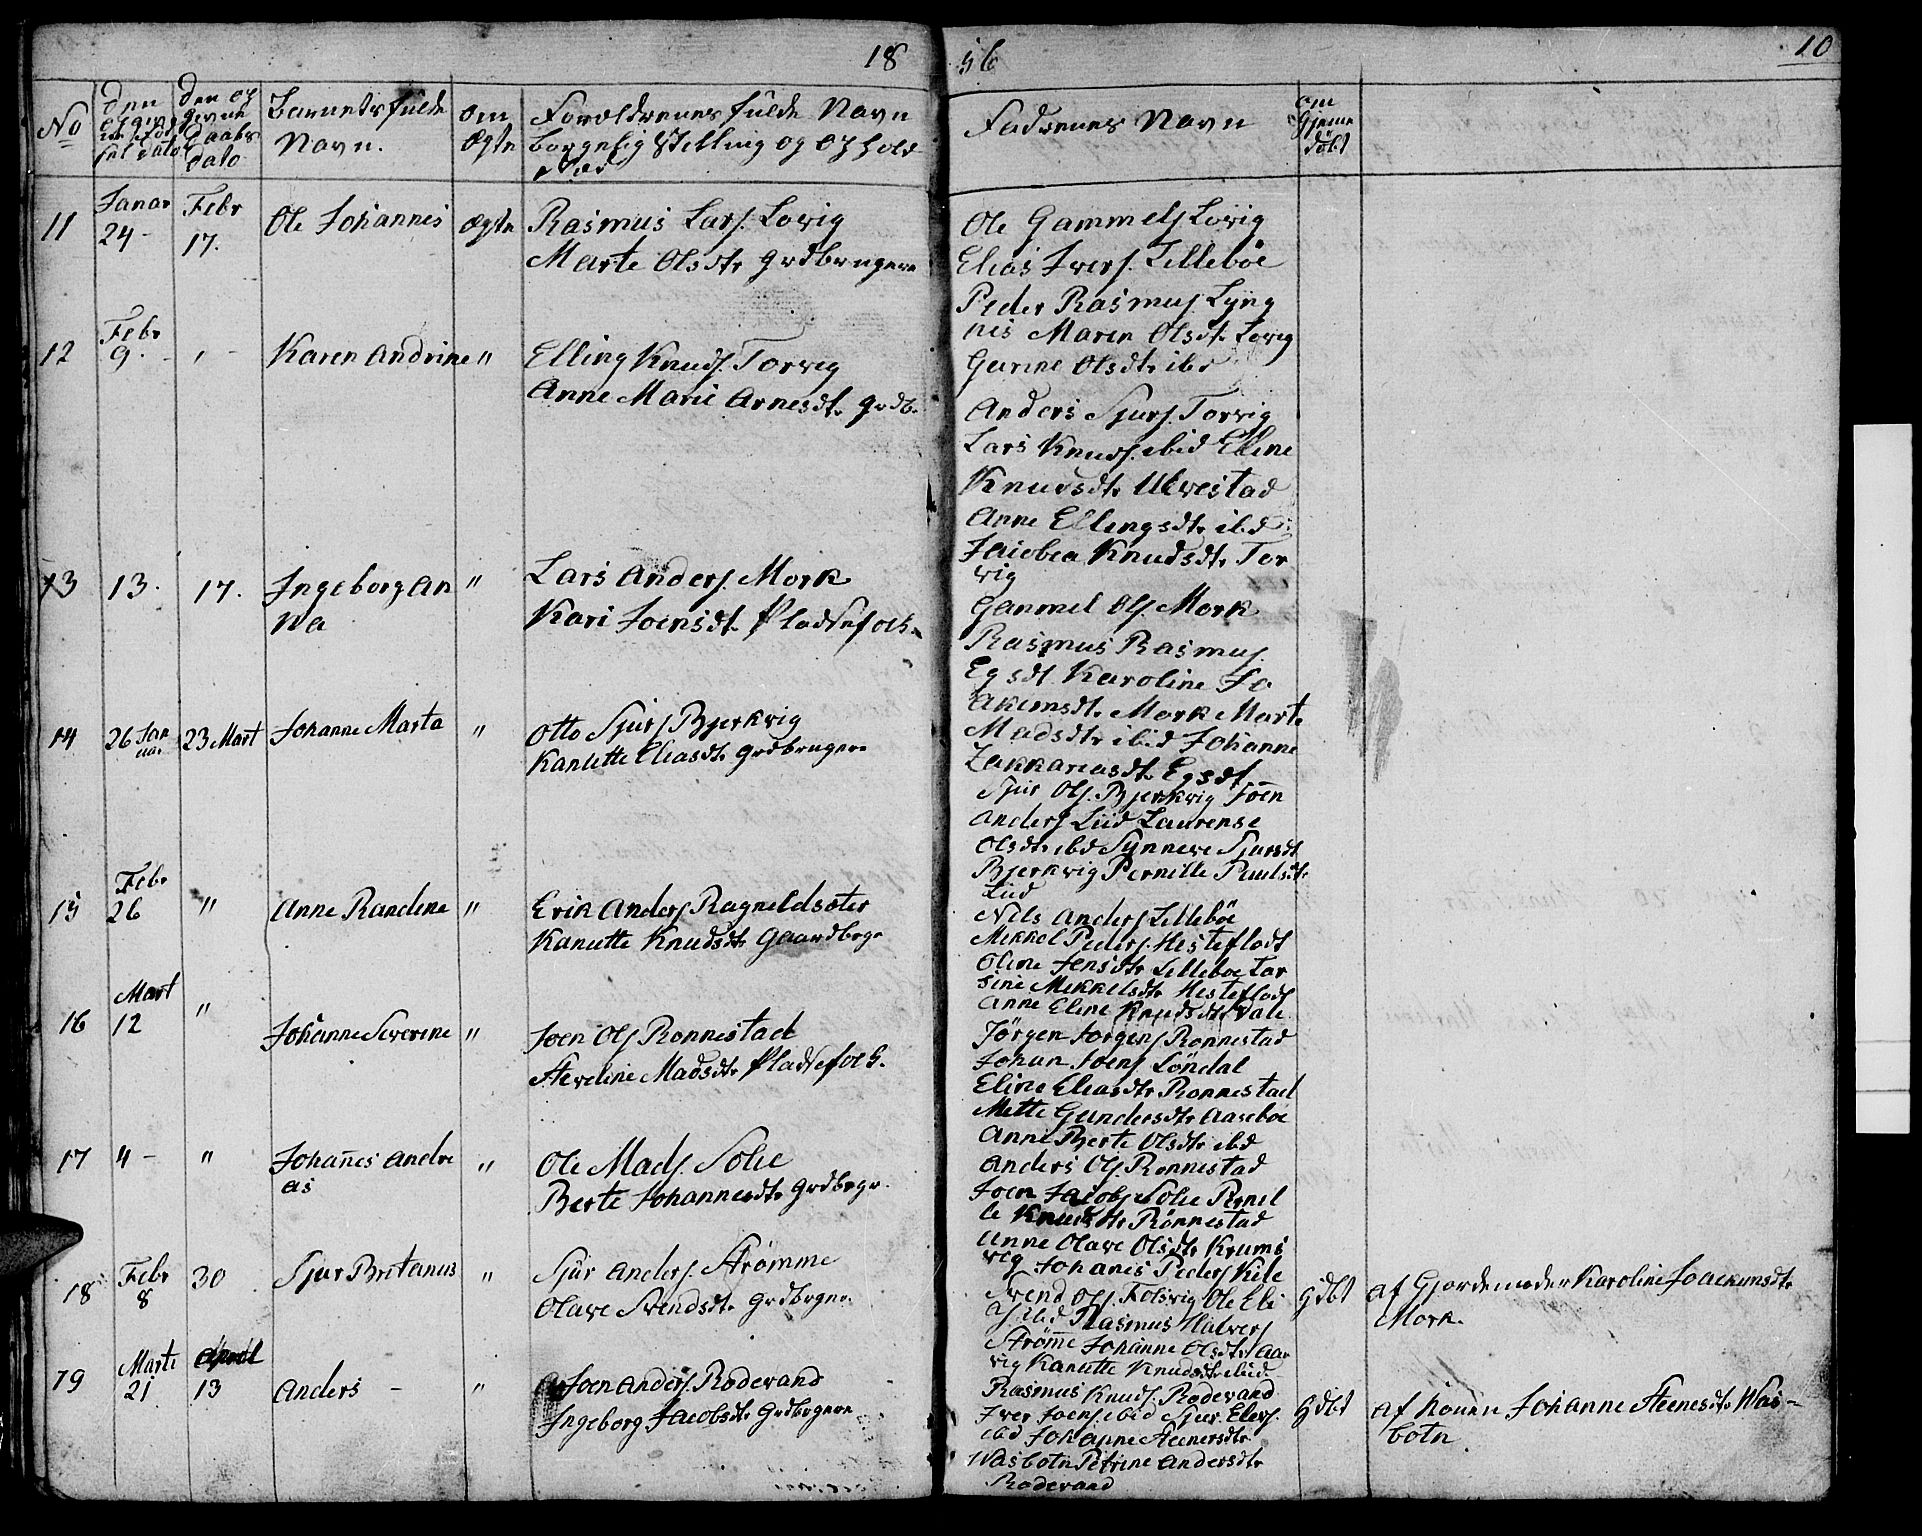 18
56
10
No
den opgivne Fødsel dato
den opgivne Daabs dato
Barnets fulde Navn.
om Ægte
Foroldrenes fulde Navn borgelig Stelling og ophold Sted
Fadrenes Navn
om Hjeme döbt
11
Janar 24 -
Febr 17.
Ole Johannes
Ægte
Rasmus Lars. Lovig
Marte Olsdtr grdbrugere
Ole Gammels Lovig
Elias Ivers. Lillebøe
Peder Rasmus. Lyng
nes Maren Olsdtr Lovig
Gurine Olsdtr ibd
12
Febr 9. -
" -
Karen Andrine
"
Elling Knuds. Torvig
Anne Marie Arnesdtr grdb.
Anders Sjurs. Torvig
Lars Knuds. ibid Eline
Knudsdtr Ulvestad
Anne Ellingsdtr ibd
Jacobea Knudsdtr Tor
vig
13
13.
17.
Ingeborg An
na
"
Lars Anders. Mork
Kari Joensdtr Pladsefolk
Gammel Ols. Mork
Rasmus Rasmus.
Egsdt Karoline Jo
akimsdtr Mork Marte
Madsdtr ibid Johanne
Zakkariasdtr Egsdt
14
26 Jan
uar
23 Mart
Johanne Marta
"
Otto Sjurs Bjerkvig
Kanutte Eliasdtr grdbrugere
Sjur Ols. Bjerkvig Joen
Anders Liid Laurense
Olsdtr ibd Synneve Sjursdt
Bjerkvig Pernille Paulsdtr
Liid
15
Febr 26
"
Anne Randine
"
Erik Anders Ragneldsæter
Kanutte Knudsdtr Gaardbrgr
Nils Anders Lillebøe
Mekkel Peders. Hesteflodt
Oline Jensdtr Lilleboe Lar
sine Mekkelsdtr Hesteflodt
Anne Eline Knudsdtr Dale
16
Mart 12
"
Johanne Severine
"
Joen Ols Ronnestad
Steveline Madsdtr Pladsefolk.
Jørgen Jorgens Ronnestad
Johan Joens Löndal
Eline Eliasdtr Ronnestad
Mette Gundersdtr Aaseboe
Anne Berte Olsdtr ibd
17
" -
"
Johanes Andre
as
"
Ole Mads. Solie
Berte Johannesdtr grdbrgr.
Anders Ols. Ronnestad
Joen Jacobs Solie Pernil
le Knudsdtr Rönnestad
Anne Olave Olsdtr Krums
vig
18
Febr 8
30
Sjur Britanus
"
Sjur Anders. Strömme
Olave Svendsdtr grdbrgre.
Johanes Peders Kile
Svend Ols. Folsvig Ole Eli
as. ibd Rasmus Halvors
Strömme Johanne Olsdtr Aar
vig Kanutte Knudsdtr ibid
gdbt
af Gjordemoder Karoline Joackimsdtr
Mork.
19
Marts 21
April 13
Anders -
"
Joen Anders. Rodevand
Ingeborg Jacobsdtr Grdbrgere
Rasmus Knuds. Rodevand
Iver Joens. ibid Sjur Elers.
ibd Johanne Steenersdtr
Wasbotn Petrine Andersdtr
Rodevand
gdbt
af konen Johanne Steenesdtr Was-
botn.